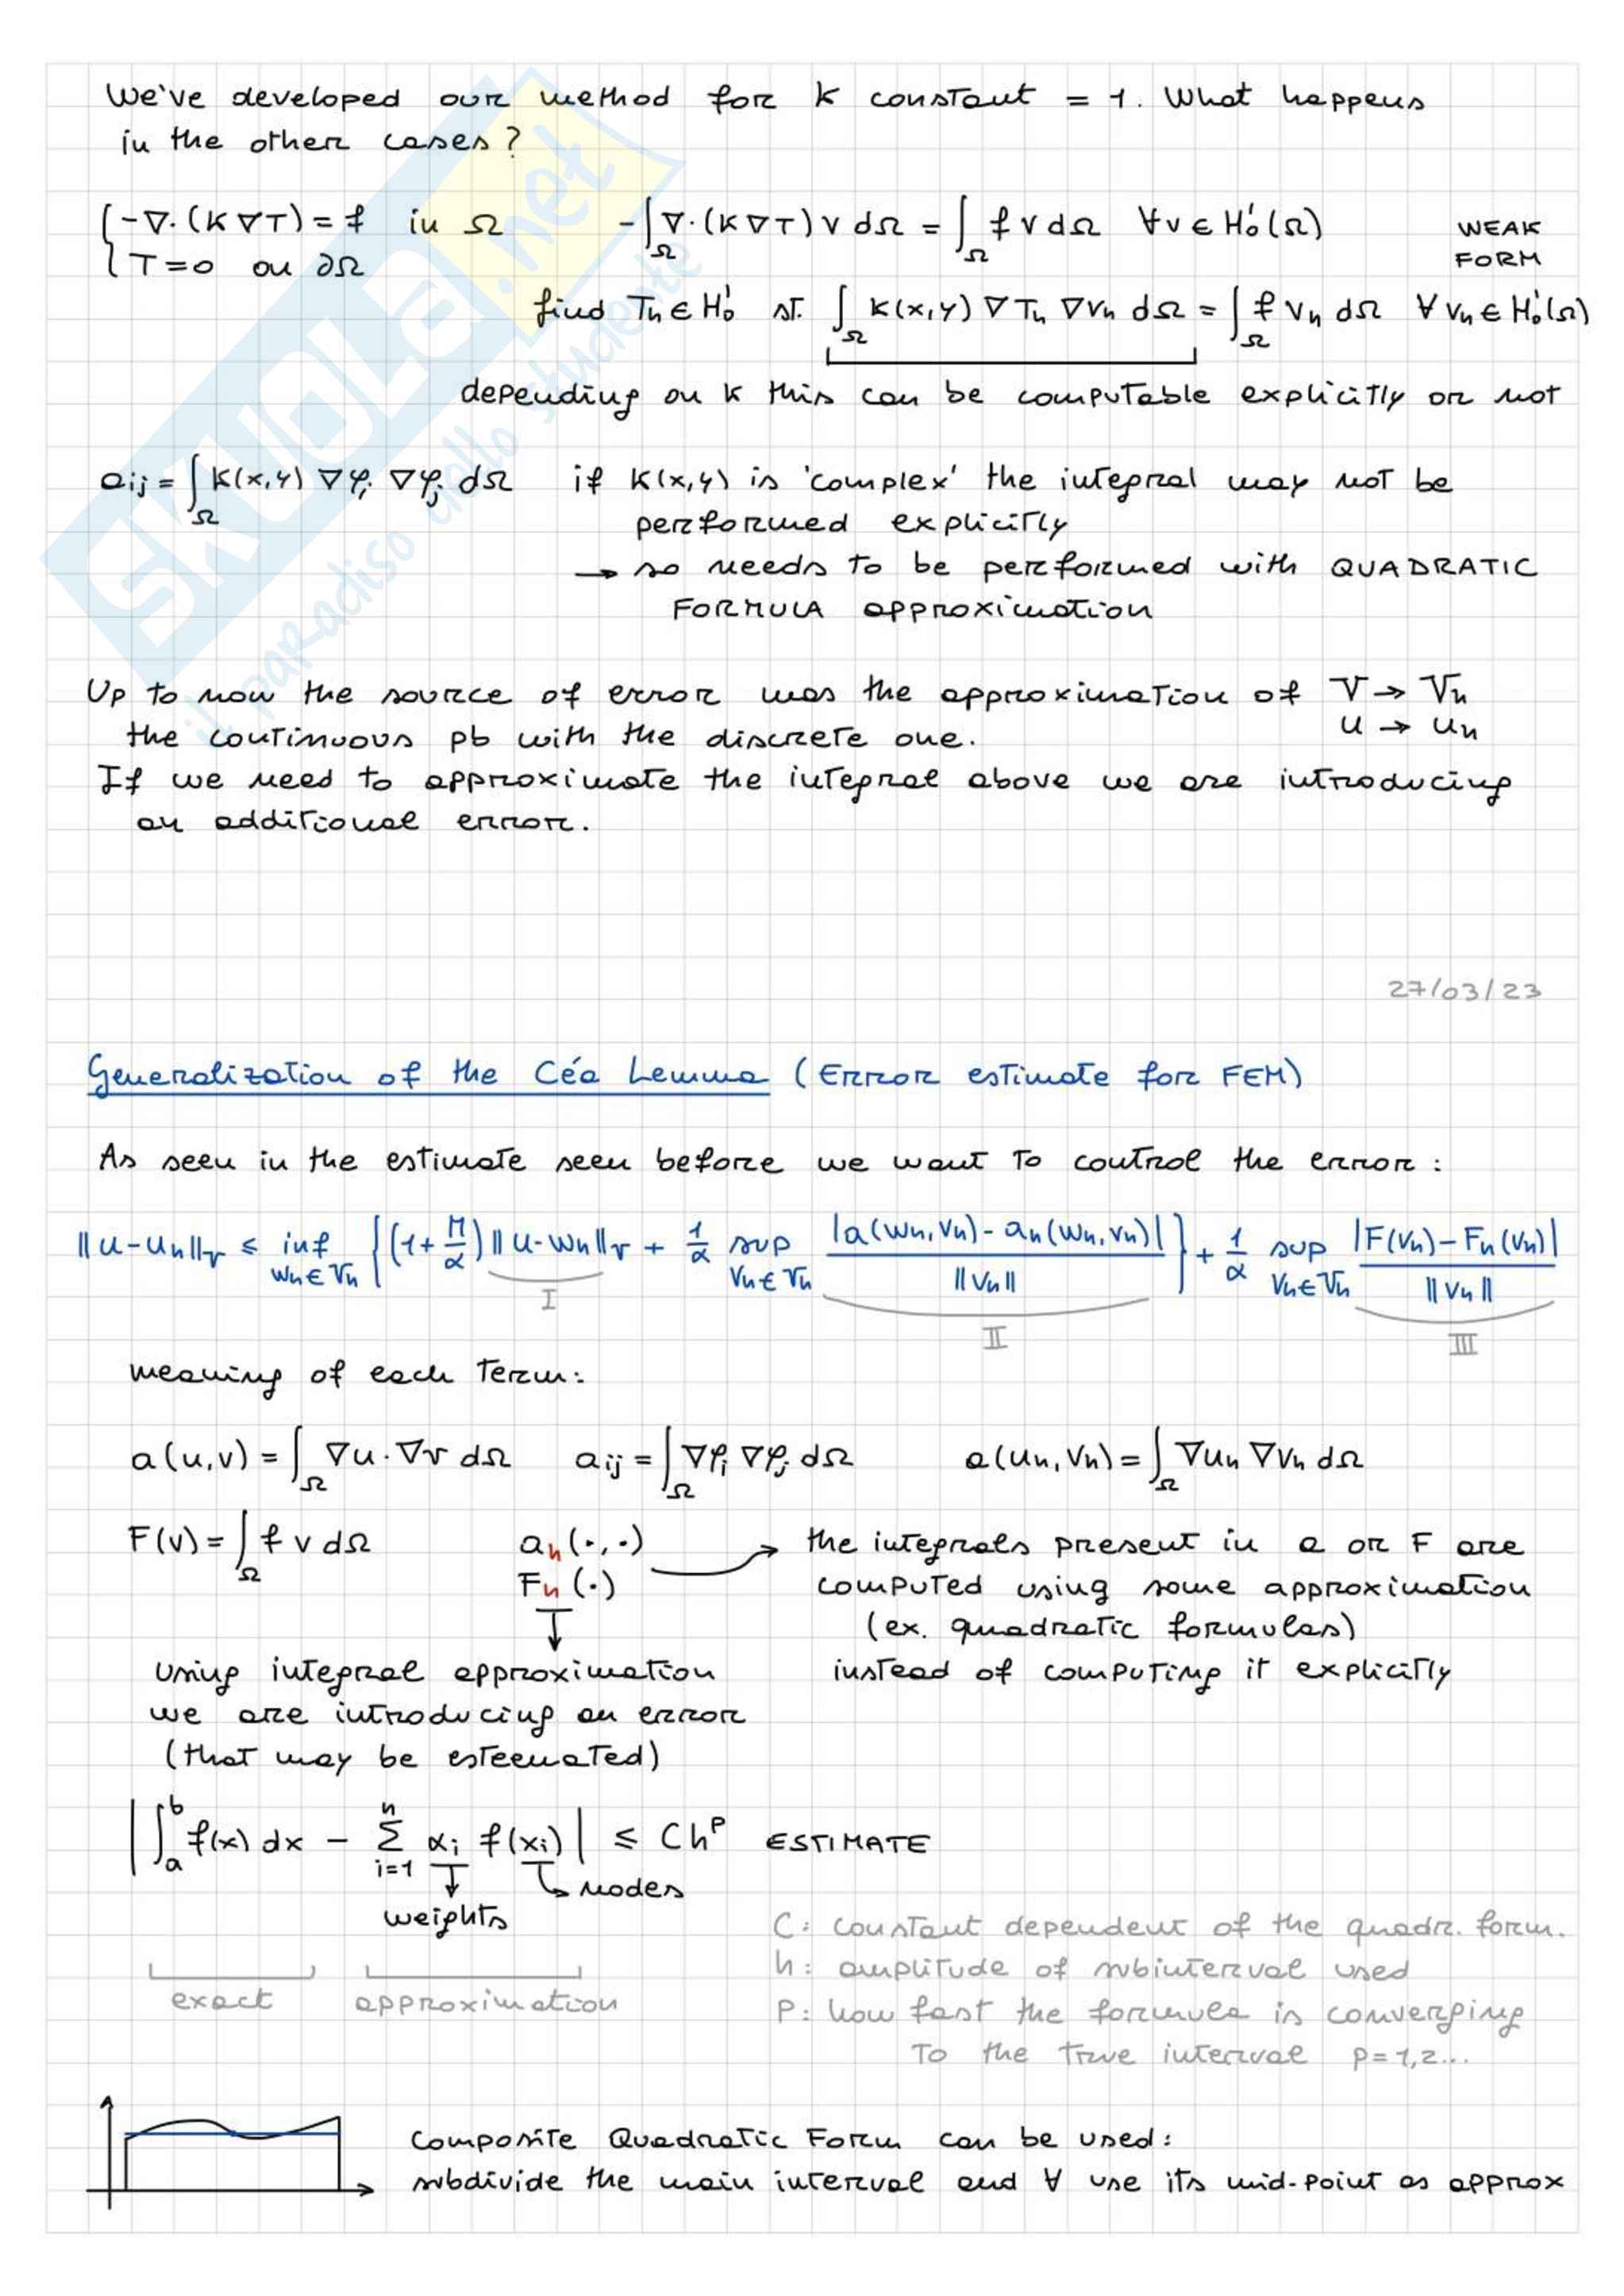 We've developed our method for K constant = 1. What happens
in the other cases?
{-∇·(K∇T) = f in Ω -∫_Ω ∇·(K∇T) v dΩ = ∫_Ω f v dΩ ∀v ∈ H¹₀(Ω) WEAK
T=0 on ∂Ω FORM
find Th ∈ H¹₀ st. ∫_Ω K(x,y) ∇Th ∇vh dΩ = ∫_Ω f vh dΩ ∀ vh ∈ H¹₀(Ω)
depending on K this can be computable explicitly or not
aij = ∫_Ω K(x,y) ∇φi ∇φj dΩ if K(x,y) is 'complex' the integral may not be
performed explicitly
→ so needs to be performed with QUADRATIC
FORMULA approximation
Up to now the source of error was the approximation of V → Vh
the continuous pb with the discrete one. u → uh
If we need to approximate the integral above we are introducing
an additional error.
27/03/23
Generalization of the Céa Lemma (Error estimate for FEM)
As seen in the estimate seen before we want to control the error:
‖u-uh‖_V ≤ inf_{wh∈Vh} {(1+M/α)‖u-wh‖_V + 1/α sup_{vh∈Vh} |a(wh,vh) - ah(wh,vh)| / ‖vh‖} + 1/α sup_{vh∈Vh} |F(vh) - Fh(vh)| / ‖vh‖
I II III
meaning of each term:
a(u,v) = ∫_Ω ∇u·∇v dΩ aij = ∫_Ω ∇φi ∇φj dΩ a(uh,vh) = ∫_Ω ∇uh ∇vh dΩ
F(v) = ∫_Ω f v dΩ ah(·,·) → the integrals present in a or F are
Fh(·) computed using some approximation
(ex. quadratic formulas)
using integral approximation instead of computing it explicitly
we are introducing an error
(that may be esteemated)
|∫_a^b f(x) dx - Σ_{i=1}^n αi f(xi)| ≤ Ch^p ESTIMATE
nodes
weights
C: constant dependent of the quadr. form.
h: amplitude of subinterval used
exact approximation
P: how fast the formula is converging
to the true interval p=1,2...
Composite Quadratic Form can be used:
subdivide the main interval and ∀ use its mid-point as approx
SKUOLA.net
il paradiso dello studente